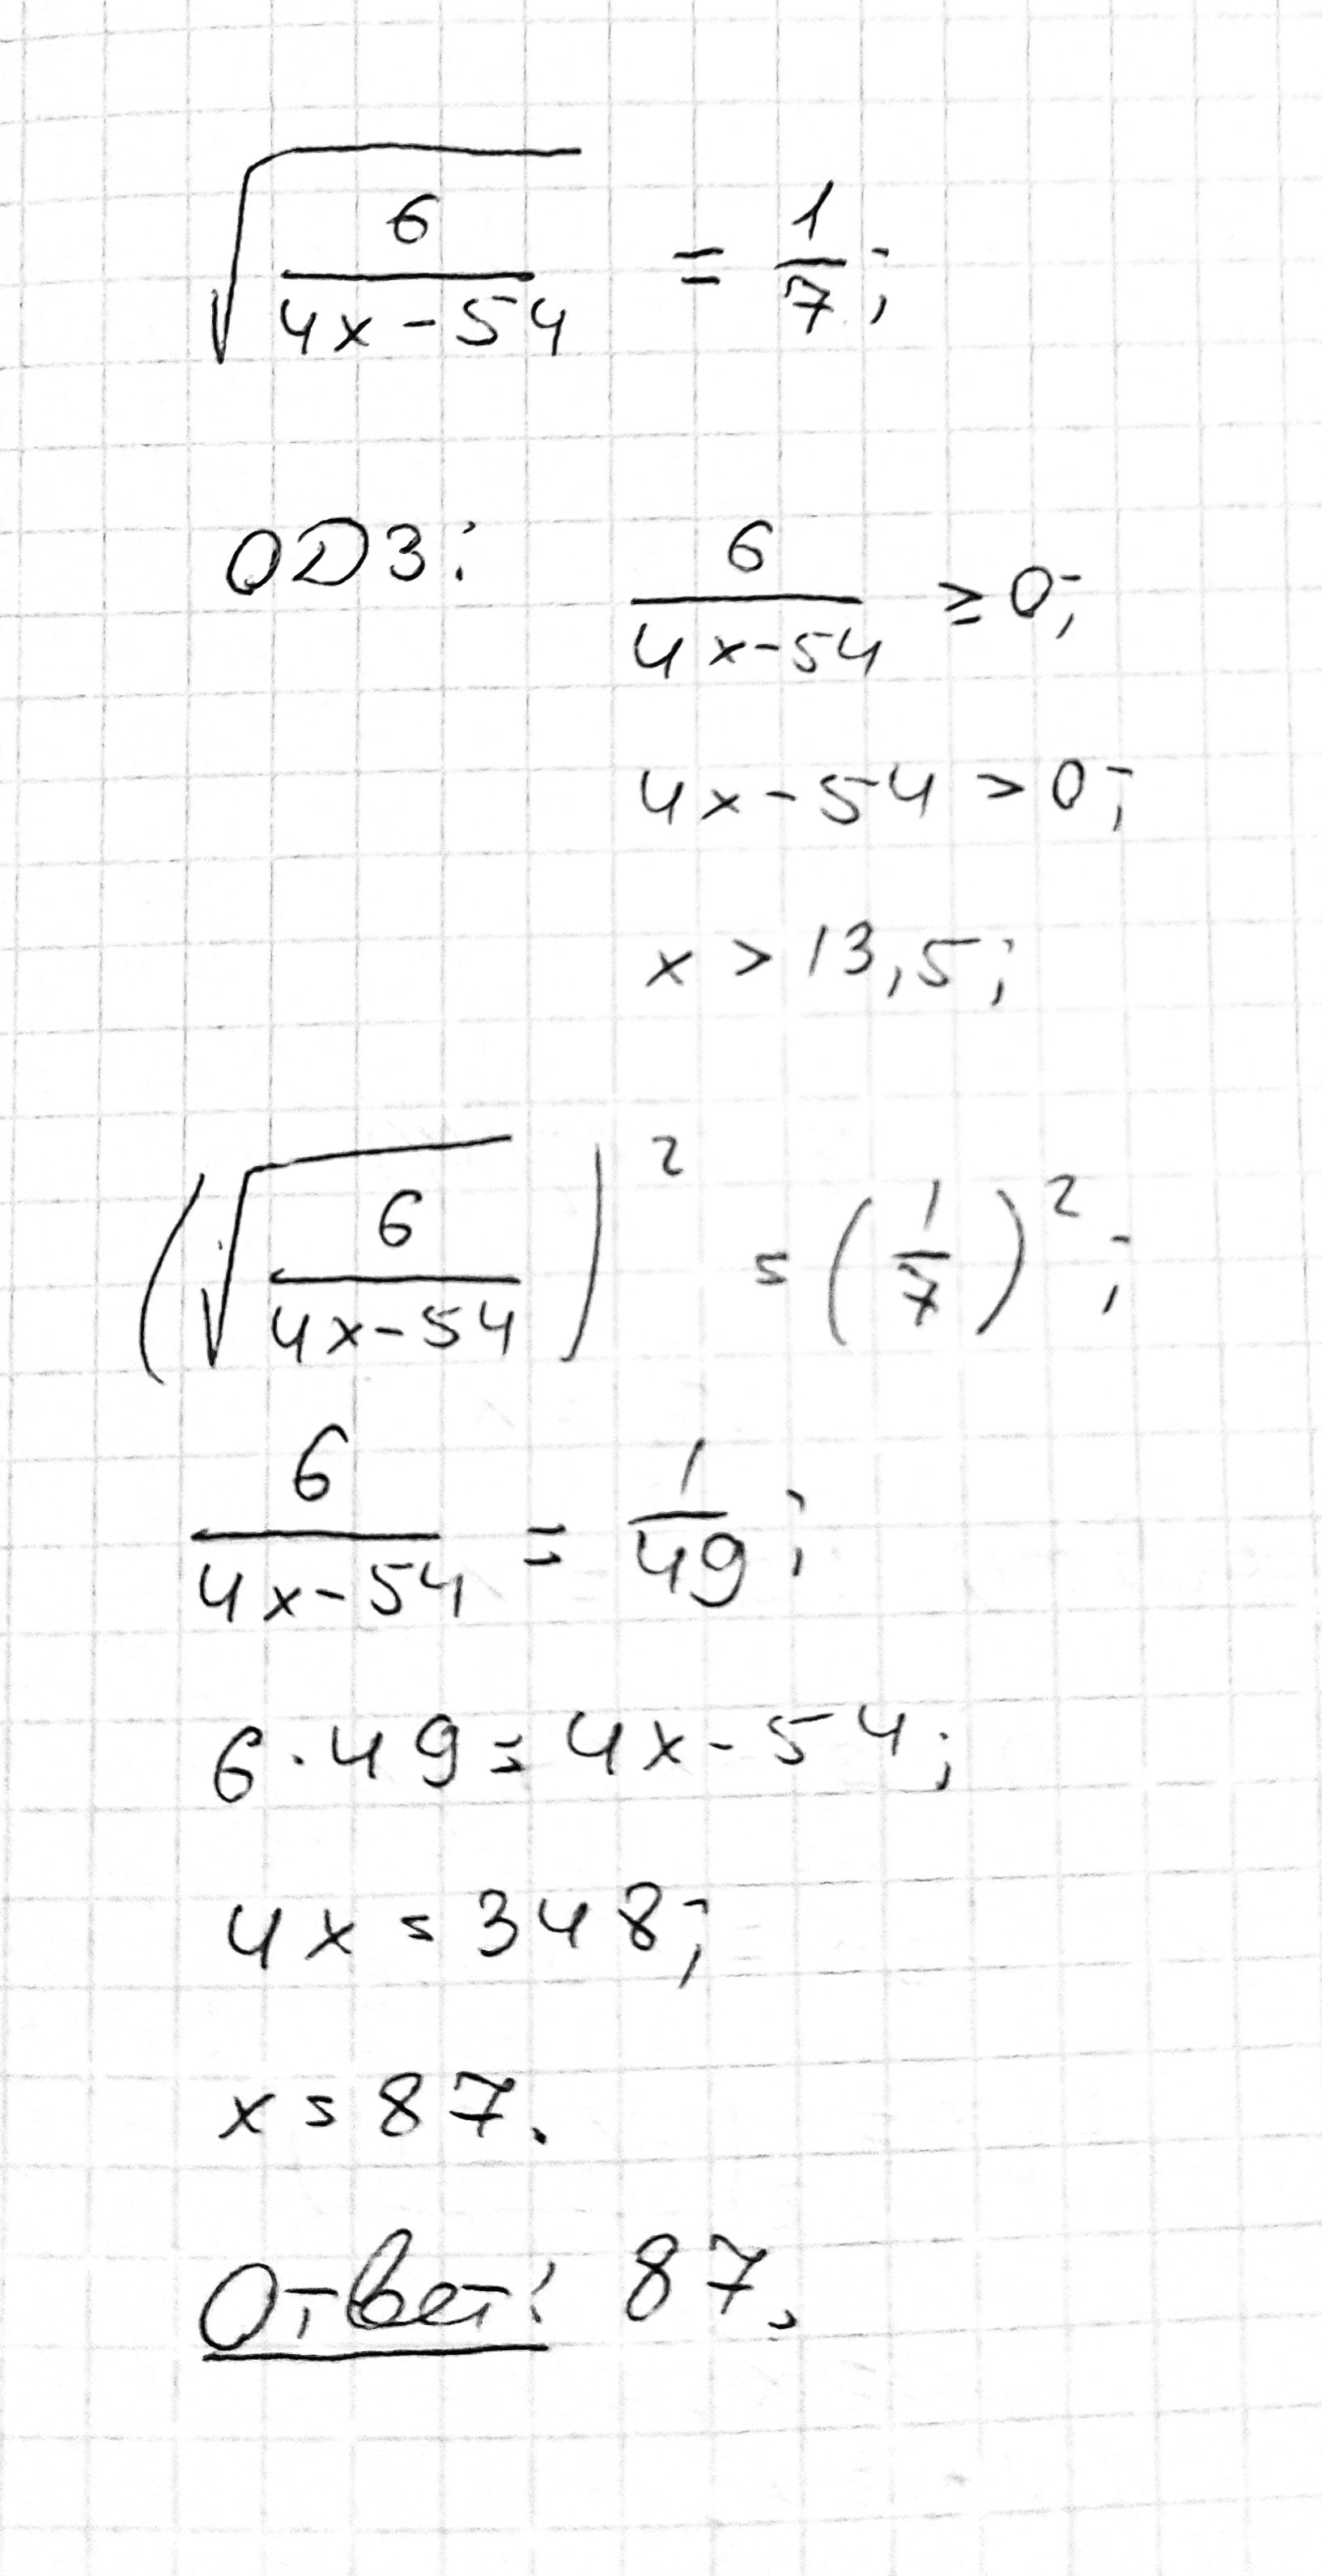 √(6/(4x-54)) = 1/7;
ОДЗ: 6/(4x-54) ≥ 0;
4x-54 > 0;
x > 13,5;
(√(6/(4x-54)))² = (1/7)²;
6/(4x-54) = 1/49;
6·49 = 4x-54;
4x = 348;
x = 87.
Ответ: 87.